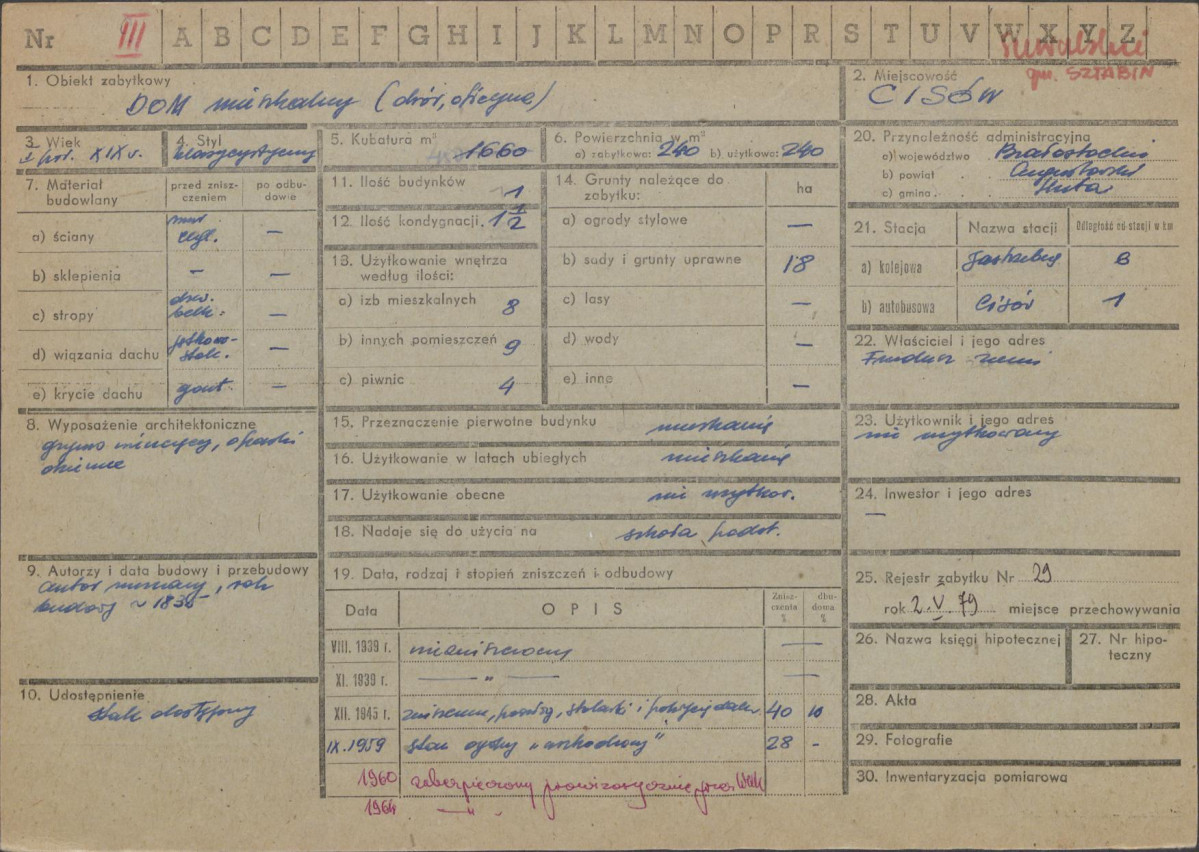 Nr III A B C D E F G H I J K L M N O P R S T U V W X Y Z
Suwalski
gm. SZTABIN
1. Obiekt zabytkowy
DOM mieszkalny (dwór, oficyna)
2. Miejscowość
CISÓW
3. Wiek
I poł. XIX w.
4. Styl
klasycystyczny
5. Kubatura m³
1660
6. Powierzchnia w m²
a) zabytkowa: 240 b) użytkowa: 240
20. Przynależność administracyjna
a) województwo Białostockie
b) powiat Augustowski
c) gmina Huta
7. Materiał budowlany
przed zniszczeniem
po odbudowie
a) ściany mur cegl. —
b) sklepienia — —
c) stropy drew. belk. —
d) wiązania dachu —
e) krycie dachu gont. —
11. Ilość budynków 1
12. Ilość kondygnacji 1 1/2
13. Użytkowanie wnętrza
według ilości:
a) izb mieszkalnych 8
b) innych pomieszczeń 9
c) piwnic 4
14. Grunty należące do
zabytku: ha
a) ogrody stylowe —
b) sady i grunty uprawne 18
c) lasy —
d) wody —
e) inne —
21. Stacja Nazwa stacji Odległość od stacji w km
a) kolejowa Jastrzębna 8
b) autobusowa Cisów 1
22. Właściciel i jego adres
Fundusz ziemi
8. Wyposażenie architektoniczne
gzyms wieńczący, opaski
okienne
15. Przeznaczenie pierwotne budynku mieszkanie
16. Użytkowanie w latach ubiegłych mieszkanie
17. Użytkowanie obecne nie użytkow.
18. Nadaje się do użycia na szkoła podst.
23. Użytkownik i jego adres
nie użytkowany
24. Inwestor i jego adres
—
9. Autorzy i data budowy i przebudowy
autor nieznany, rok
budowy ~ 1835
19. Data, rodzaj i stopień zniszczeń i odbudowy
Data OPIS Zniszczenia % dbudowa %
VIII. 1939 r. niezniszczony —
XI. 1939 r. — " —
XII. 1945 r. stolarki i pokrycia dachu 40 10
IX. 1959 stan ogólny 28 -
1960 zabezpieczony prowizorycznie przez WKZ
1964 — " .
25. Rejestr zabytku Nr 29
rok 2.V.79 miejsce przechowywania
26. Nazwa księgi hipotecznej
27. Nr hipoteczny
10. Udostępnienie
stale dostępny
28. Akta
29. Fotografie
30. Inwentaryzacja pomiarowa